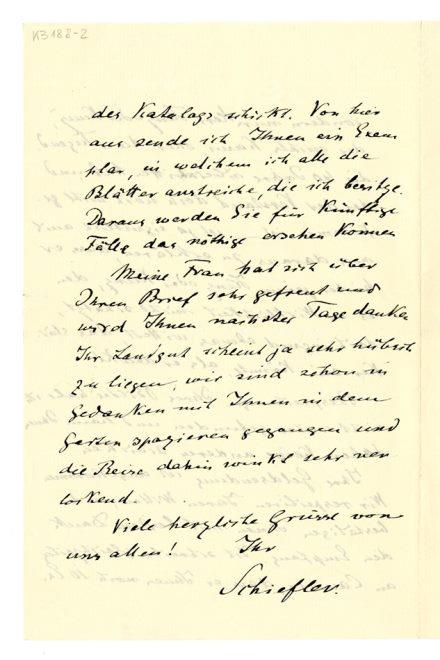 KB 188-2
des Katalogs schickt. Von hier
aus sende ich Ihnen ein Exem
plar, in welchem ich alle die
Blätter anstreiche, die ich besitze.
Daraus werden Sie für künftige
Fälle das nöthige ersehen können
Meine Frau hat sich über
Ihren Brief sehr gefreut und
wird Ihnen nächster Tage danken
Ihr Landgut scheint ja sehr hübsch
zu liegen, wir sind schon in
Gedanken mit Ihnen in dem
Garten spazieren gegangen und
die Reise dahin winkt sehr ver
lockend.
Viele herzliche Grüsse von
uns allen! Ihr
Schiefler.